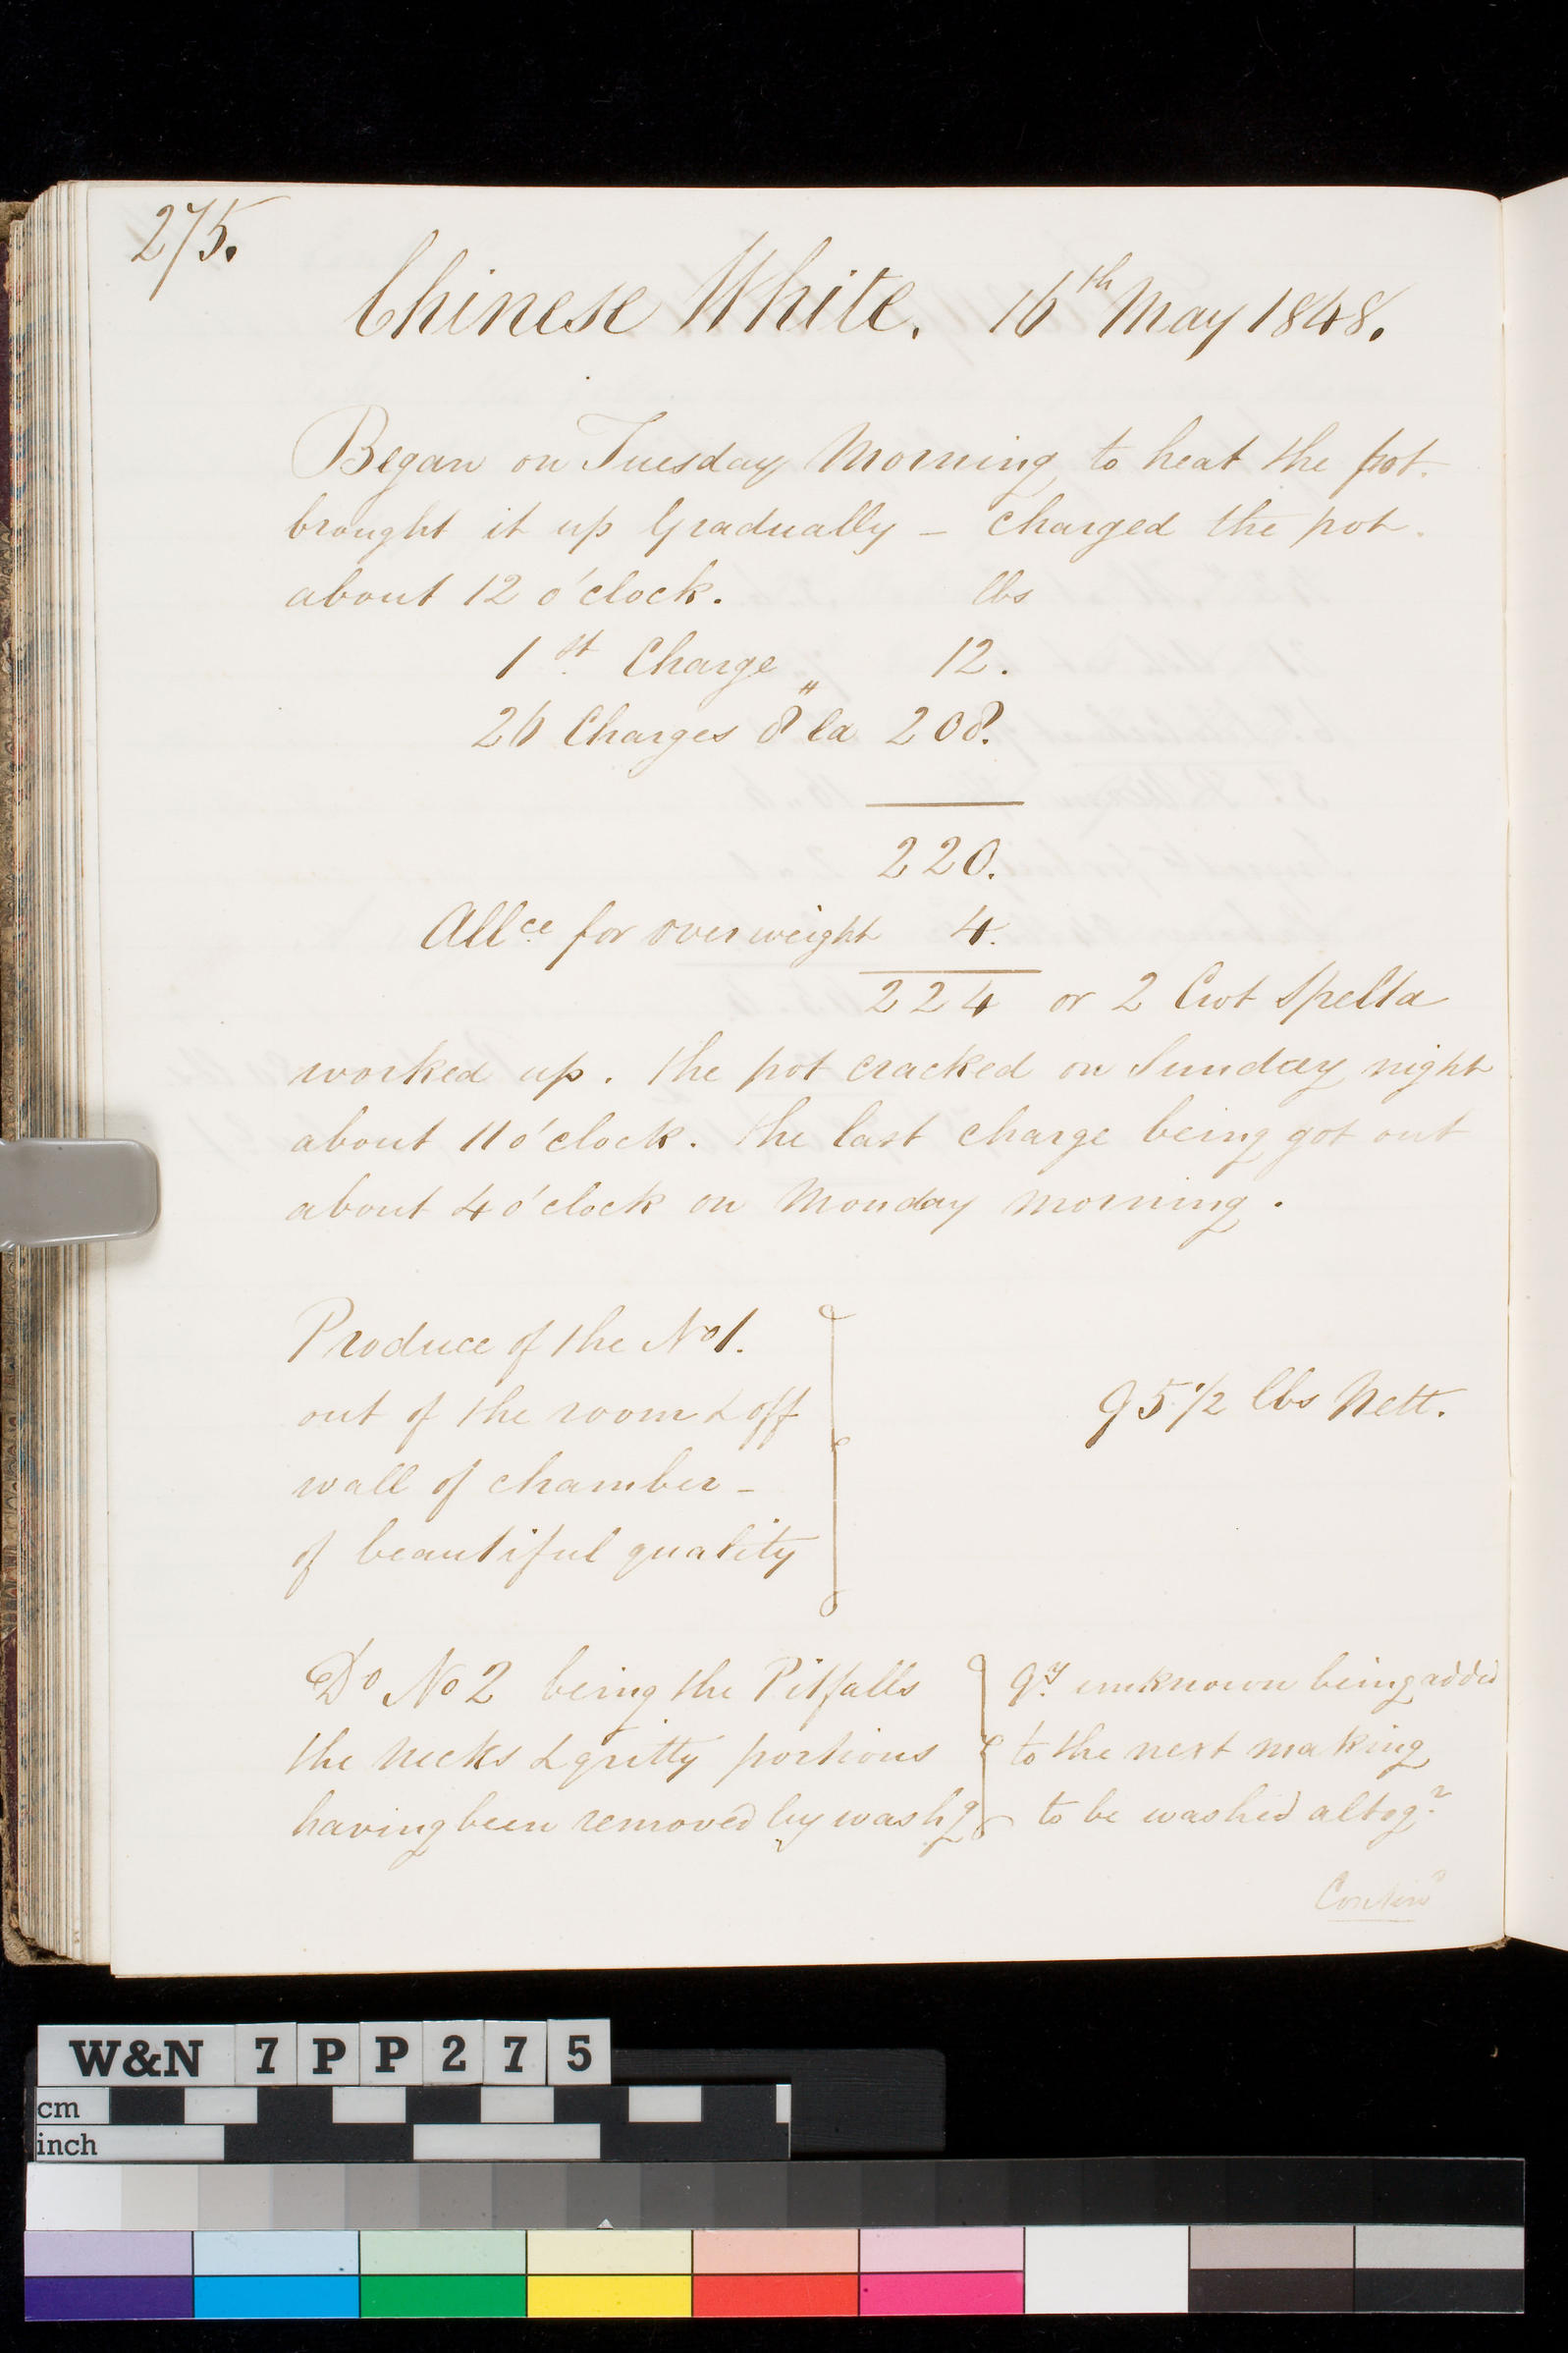 275.
Chinese White. 16th May 1848.
Began on Tuesday Morning to heat the pot.
brought it up Gradually – Charged the pot.
about 12 o'clock. lbs
1st Charge „ 12.
26 Charges 8" ea 208.
220.
Allce for overweight 4.
224 or 2 Cwt Spelta
worked up. the pot cracked on Sunday night
about 11 o'clock. the last charge being got out
about 4 o'clock on Monday morning.
Produce of the No 1.
out of the room & off
wall of chamber –
of beautiful quality
95 1/2 lbs Nett.
Do No 2 being the Pitfalls
the necks & gritty portions
having been removed by washg
qy. unknown being added
to the next making
to be washed altogr
Contind
W&N 7PP275
cm
inch